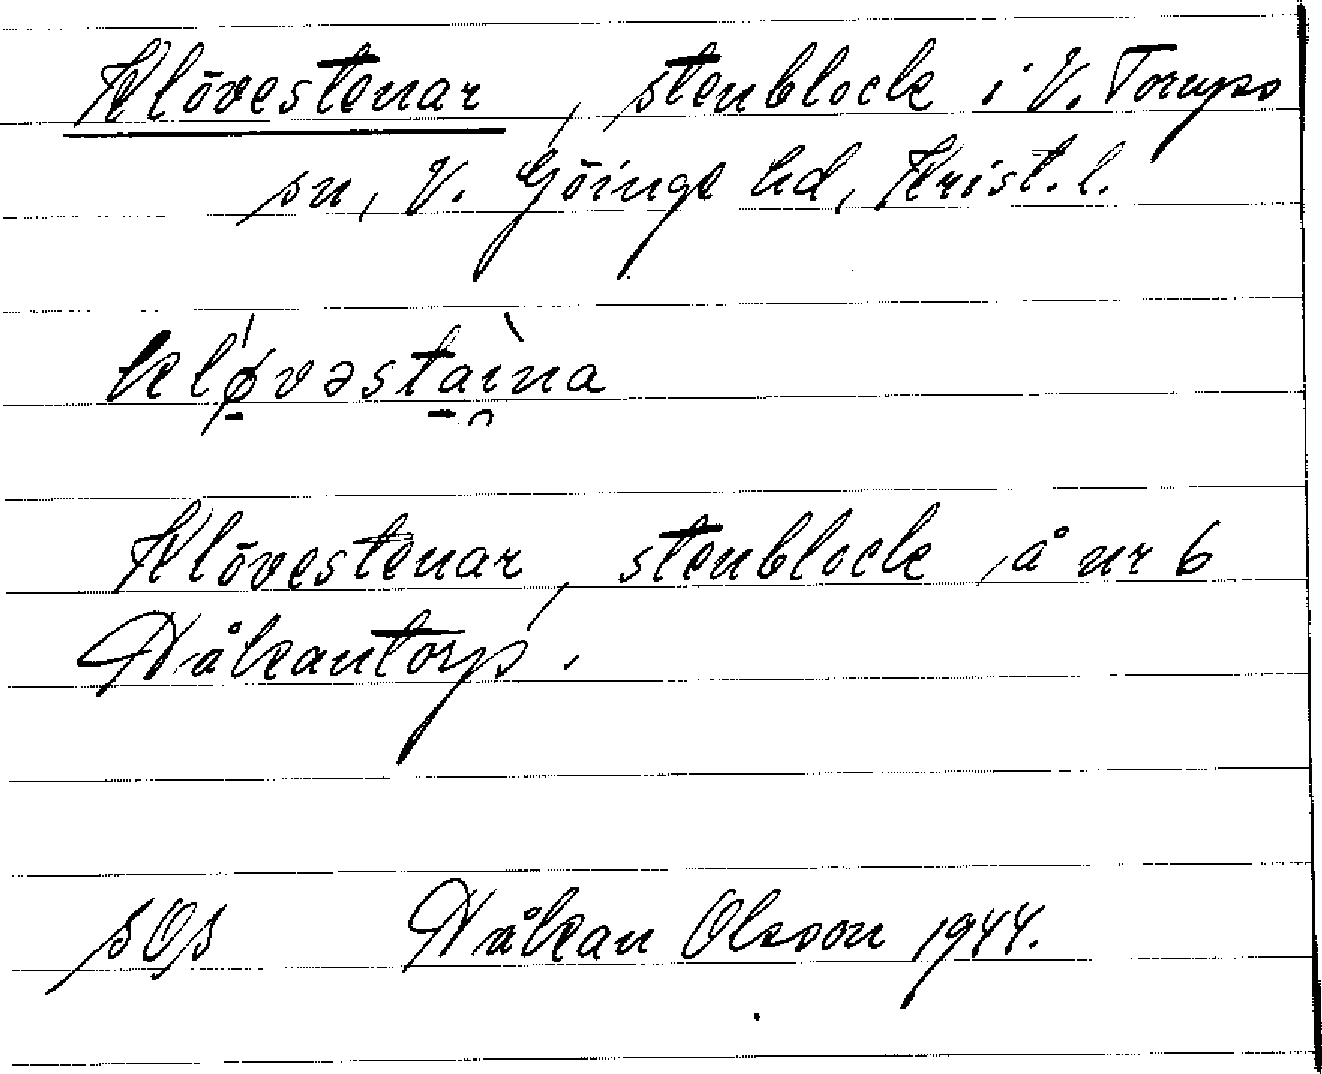 Klövestenar, stenblock i V. Torups
sn, V. Göinge hd, Krist. l.
klǿvəstaìna
Klövestenar, stenblock, å nr 6
Håkantorp.
Håkan Olsson 1944.